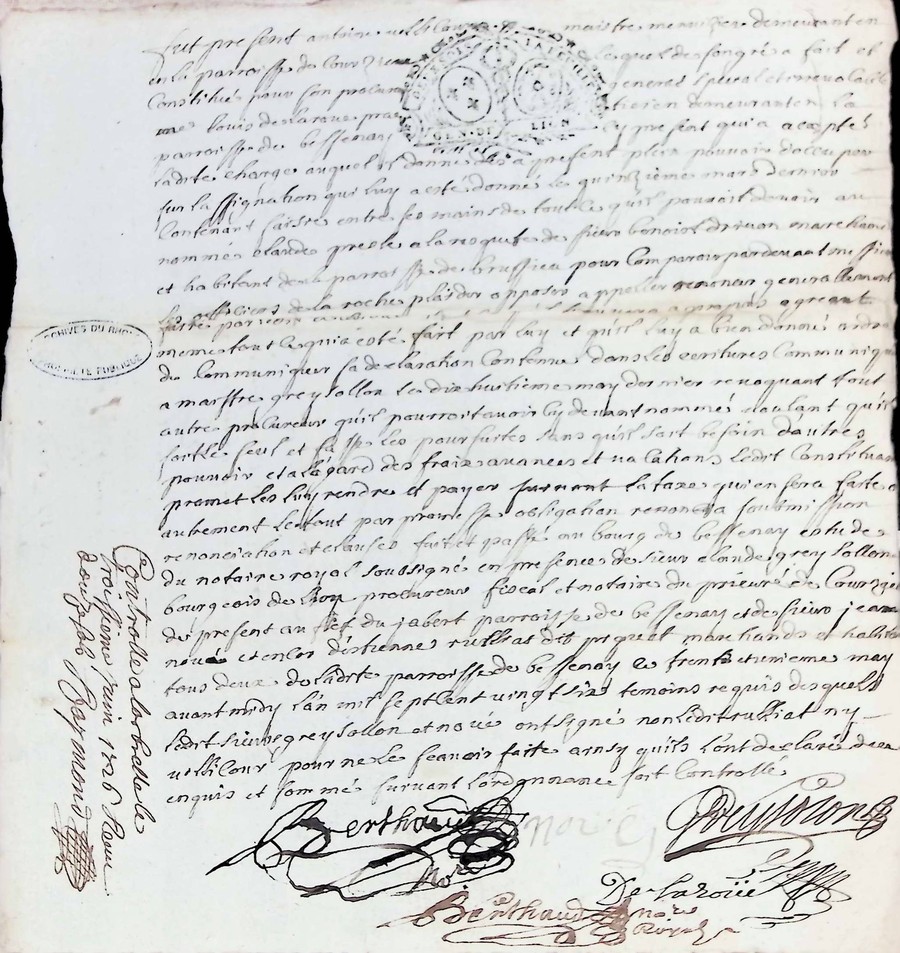 fut present antoine vellicour maistre menuizier demeurant en
en la parroisse de Courzieu lequel de son gré a fait et
Constitué pour son procureur general special et irrevocable
me louis delaroue praticien demeurant en la
parroisse de bessenay cy present qui a accepté
ladite charge auquel il donne dès a present plein pouvoir d'occuper
sur lassignation qui luy a esté donné le quinzième mars dernier
Contenant saisie entre ses mains de tout ce qu'il pouvoit devoir au
nommé claude presle a la requeste de sieur benoist drivon marchand
et habitant de la parroisse de brussieu pour Comparoir pardevant messieurs
les officiers de la roche plaider opposer appeller renoncer generallement
faire
meme tout ce qui a esté fait par luy et qu'il luy a bien donné ordre
de Communiquer sa declaration Contenue dans les ecritures Communiquées
a maistre greysollon le dix huitième may dernier revoquant tout
autre procureur qu'il pourroit avoir cy devant nommé voulant qu'il
soit le seul et fasse les poursuites sans qu'il soit besoin d'autres
pouvoir et a l'egard des fraix avances et vacations ledit Constituant
promet les luy rendre et payer suivant la taxe qui en sera faite
autrement le tout par promesse obligation renon soubmission
renonciation et clauses fait et passé au bourg de bessenay etude
du notaire royal soussigné en presence de sieur claude greysollon
bourgeois de lion procureur fiscal et notaire du prieuré de Courzieu
de present au fief du jabert parroisse de bessenay et de sieur jean
noué et encor d'estienne rulliat dit piquet marchands et habitants
tous deux de ladite parroisse de bessenay le trente et unieme may
avant midy l'an mil sept cent vingt six temoins requis desquels
ledit sieur greysollon et noué ont signé non ledit rulliat ny
vellicour pour ne le scavoir faite ainsy qu'ils l'ont declaré de ce
enquis et sommé suivant l'ordonnance soit Controllé
Berthaud
noué
Greysolon
Nore
De Laroüe
Berthaud nore
Royal
Controllé a larbresle le
troisième juin 1726 Recu
douze sols Raymond
GEN. DE LION
ARCHIVES DU RHONE